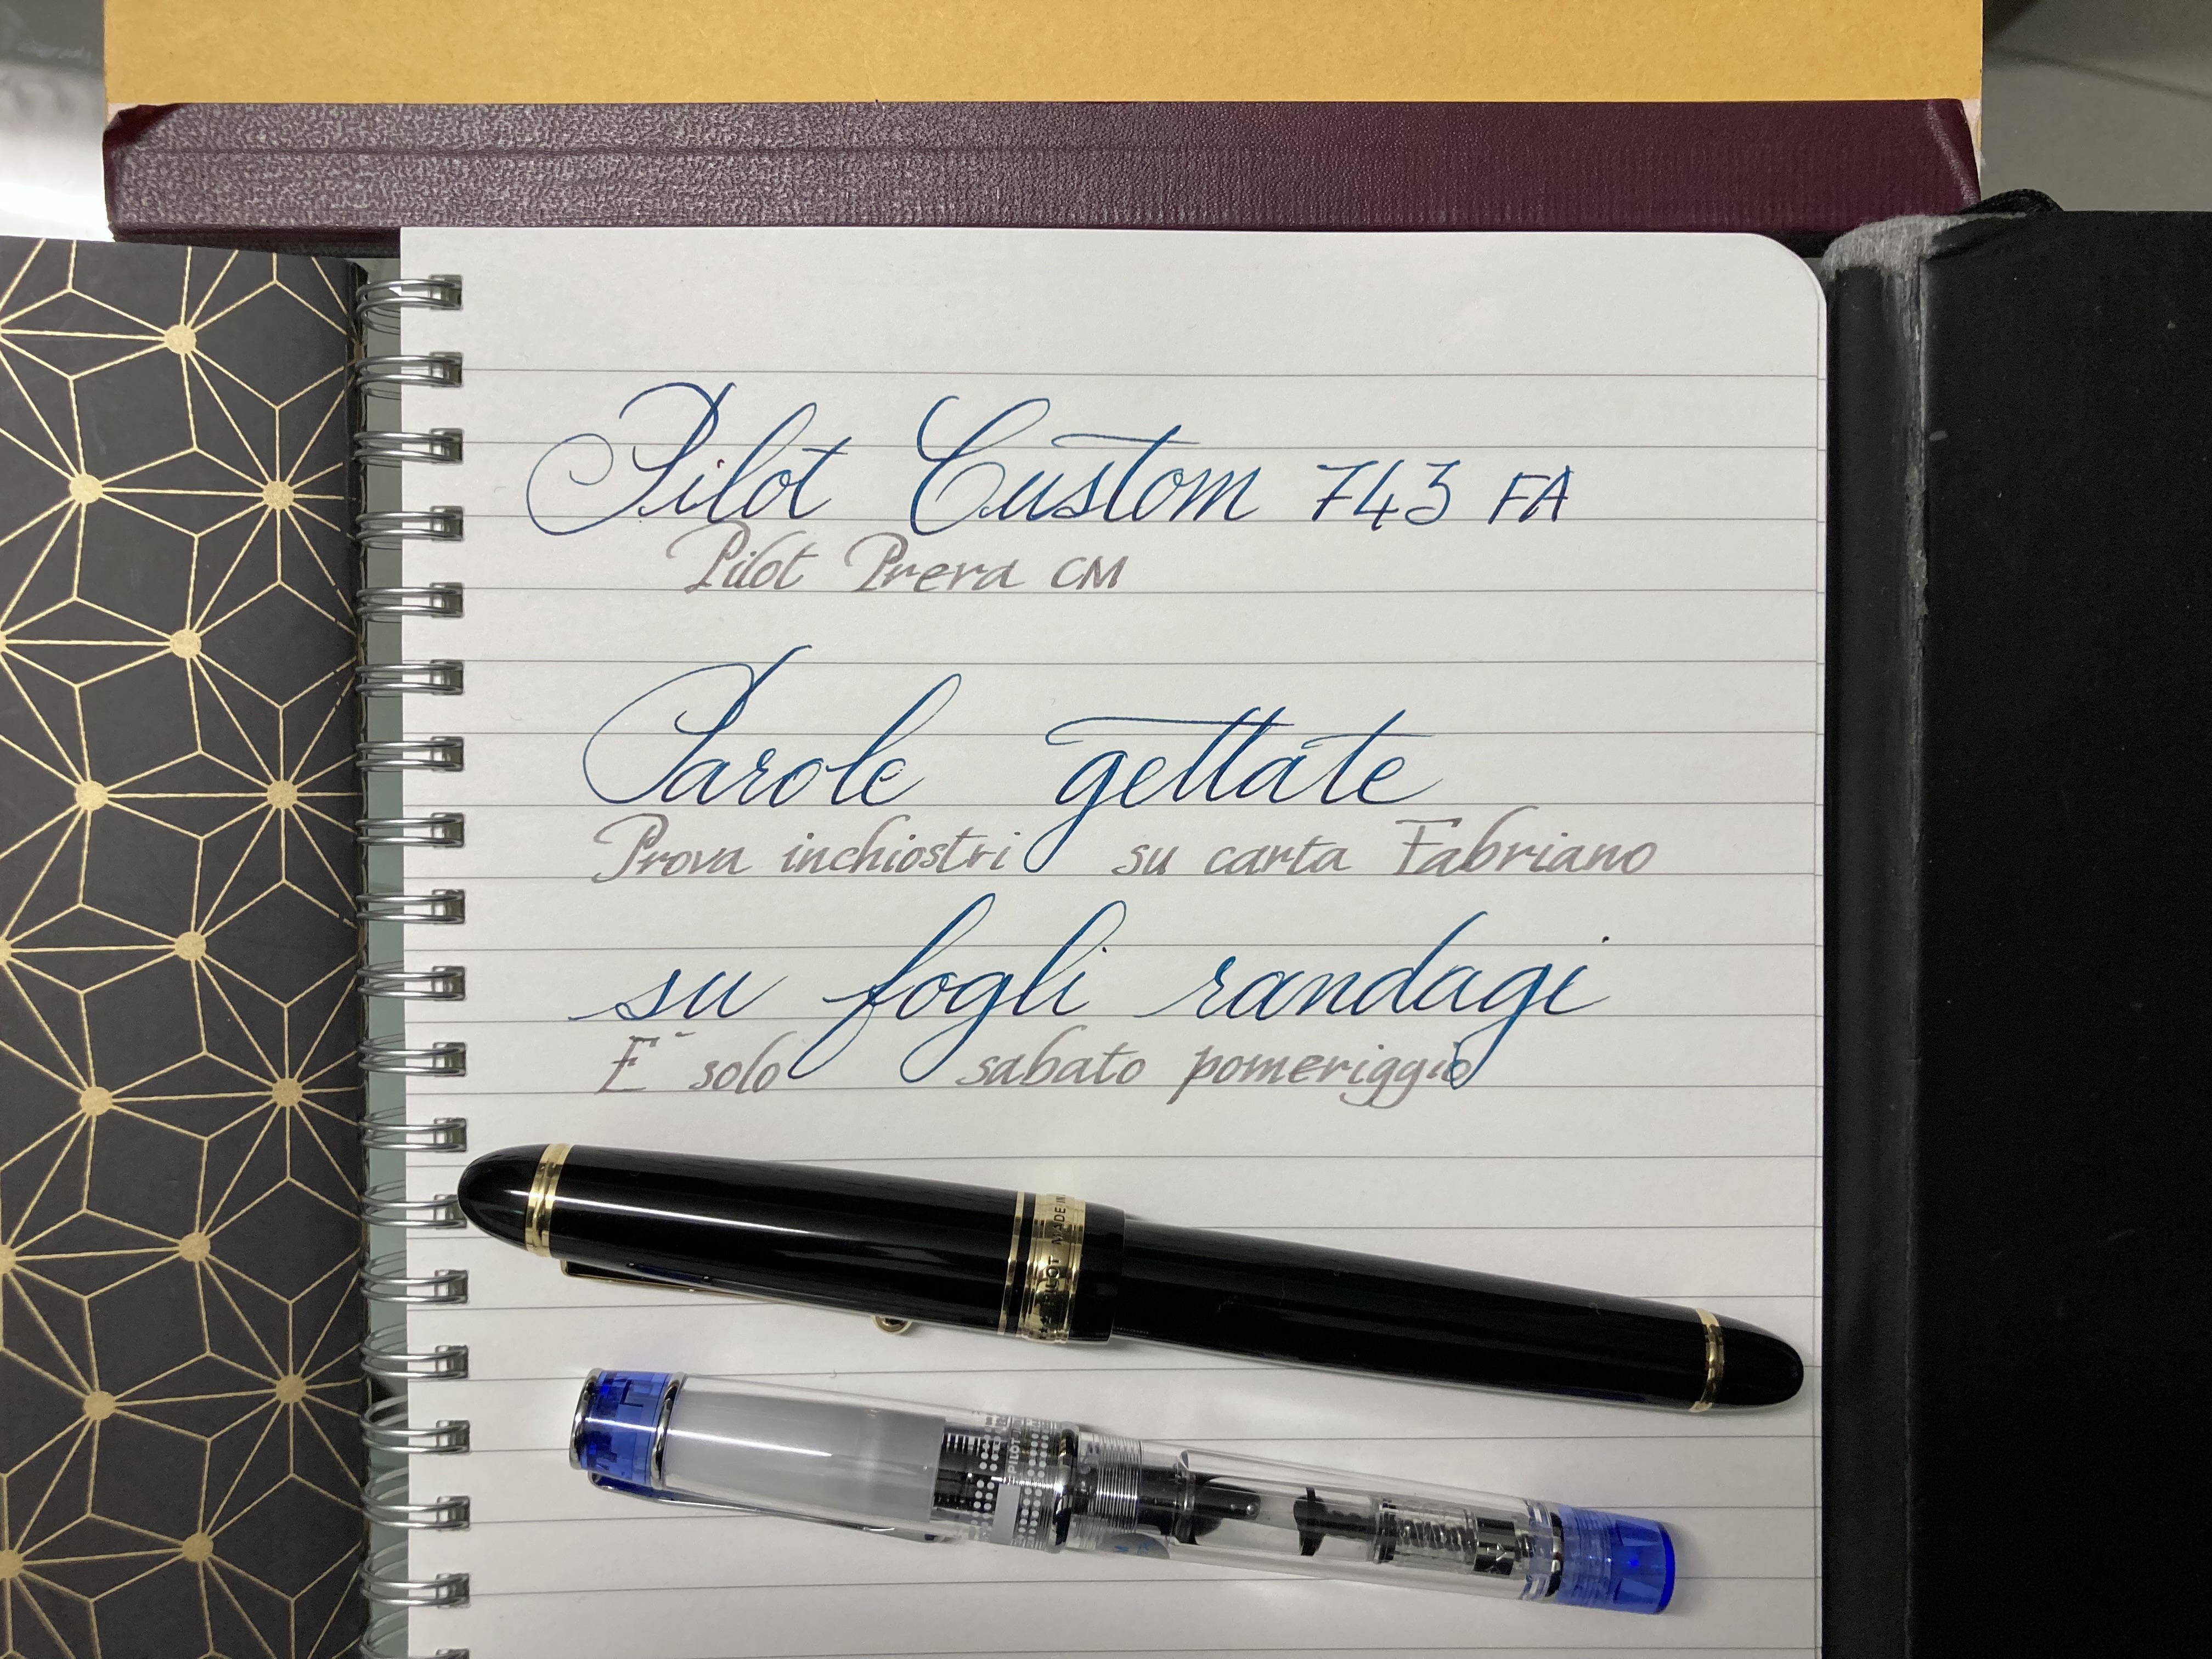 Pilot Custom 743 FA
Pilot Prera CM
Parole gettate
Prova inchiostri su carta Fabriano
su fogli randagi
E` solo sabato pomeriggio
PILOT MADE IN
PILOT